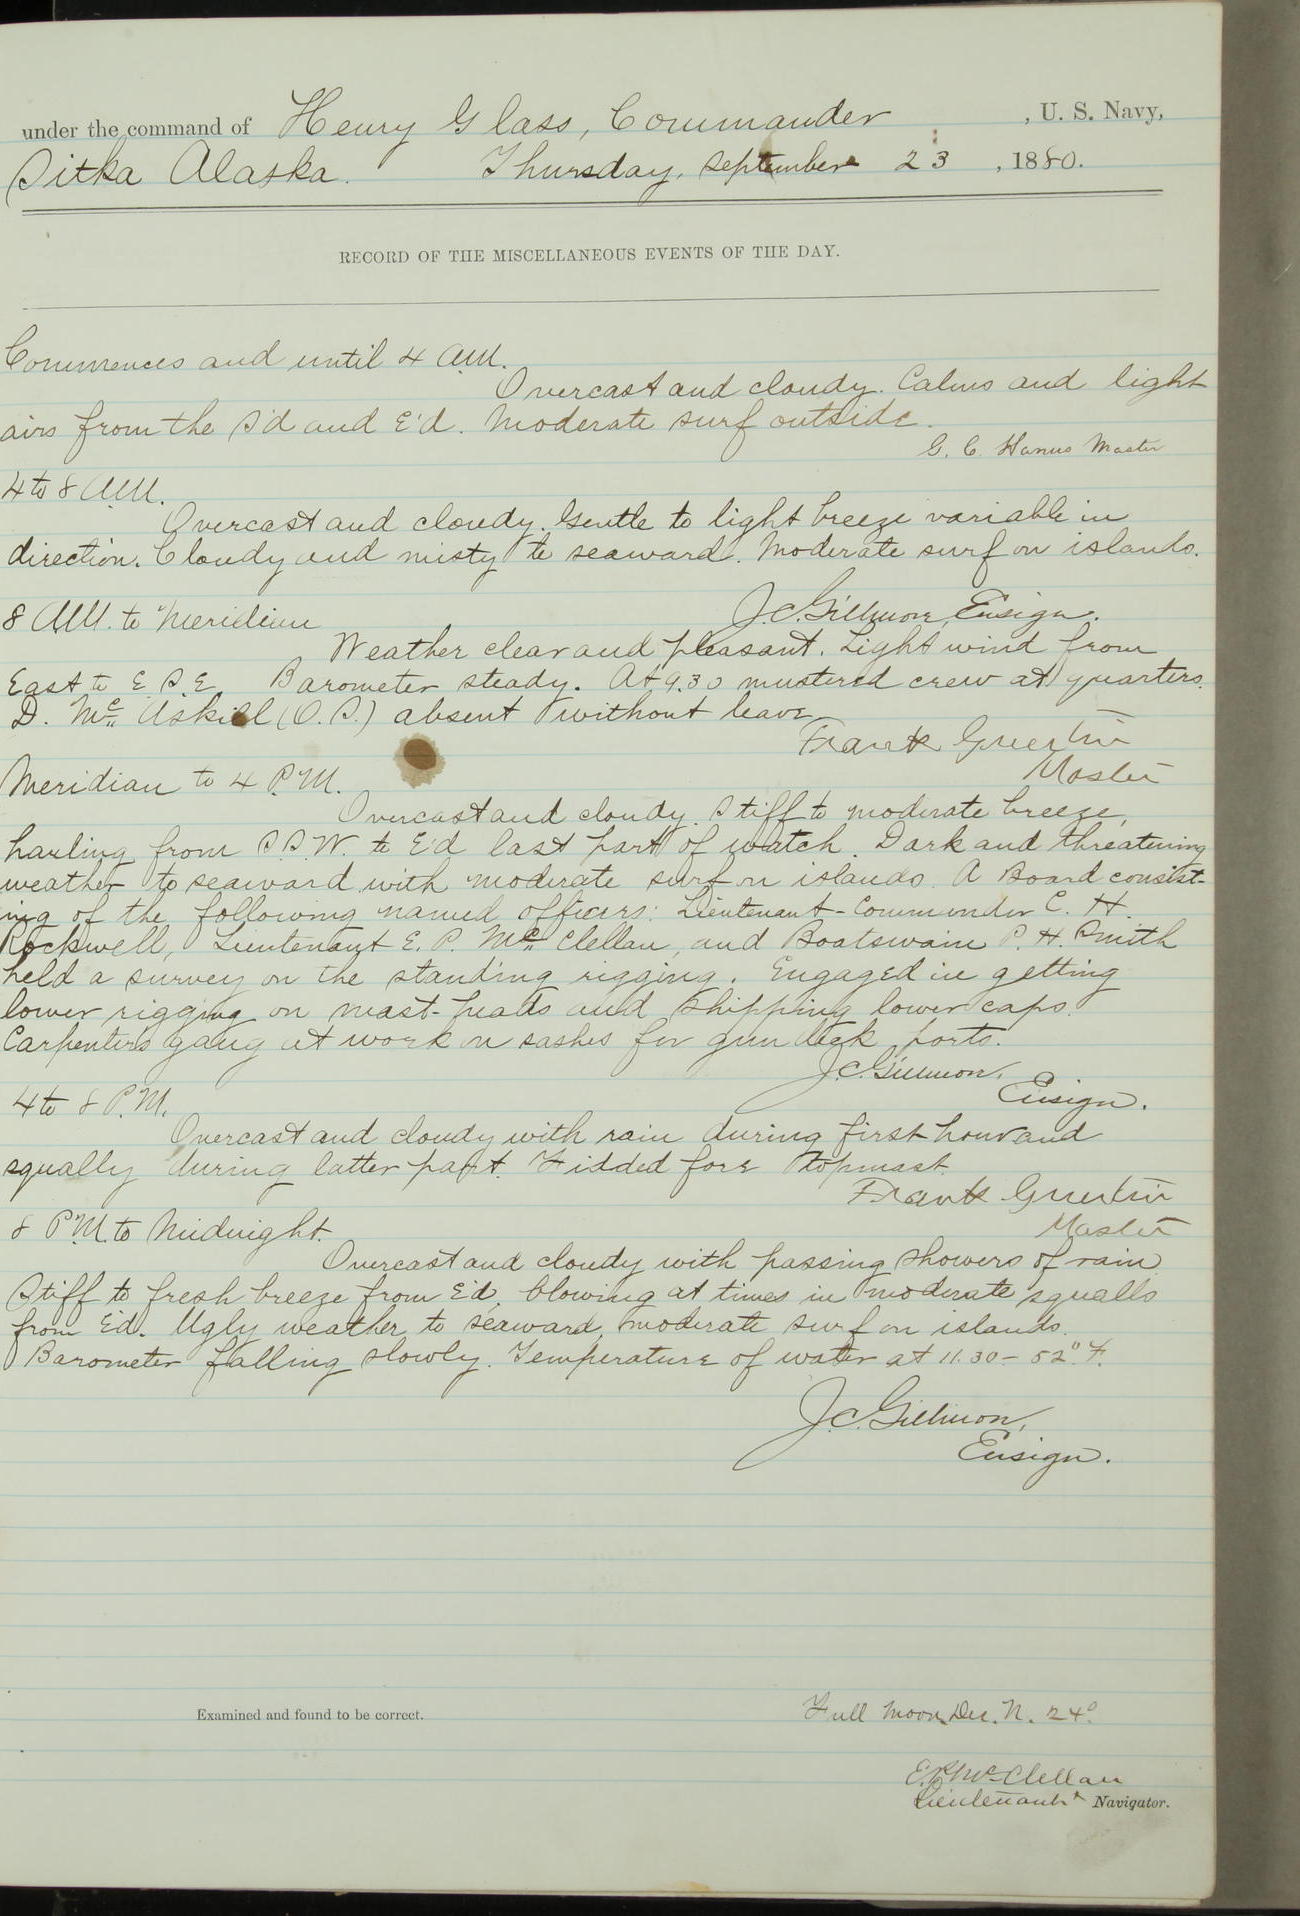 under the command of Henry Glass, Commander , U. S. Navy,
Sitka Alaska. Thursday, September 23 , 1880.
RECORD OF THE MISCELLANEOUS EVENTS OF THE DAY.
Commences and until 4 A.M.
Overcast and cloudy. Calms and light
airs from the S'd and E'd. Moderate surf outside.
G. C. Hanus Master
4 to 8 A.M.
Overcast and cloudy. Gentle to light breeze variable in
direction. Cloudy and misty to seaward. Moderate surf on islands.
J.C. Gillmore, Ensign.
8 A.M. to Meridian
Weather clear and pleasant. Light wind from
East to E.S.E. Barometer steady. At 9.30 mustered crew at quarters.
D. McAskill (O.S.) absent without leave
Frank Guertin
Master
Meridian to 4 P.M.
Overcast and cloudy. Stiff to moderate breeze,
hauling from S.S.W. to E'd last part of watch. Dark and threatening
weather to seaward with moderate surf on islands. A Board consist-
ing of the following named officers: Lieutenant-Commander C. H.
Rockwell, Lieutenant E. P. McClellan, and Boatswain P. H. Smith
held a survey on the standing rigging. Engaged in getting
lower rigging on mast-heads and shipping lower caps.
Carpenter's gang at work on sashes for gun deck ports.
J.C. Gillmore,
Ensign.
4 to 8 P.M.
Overcast and cloudy with rain during first hour and
squally during latter part. Fidded fore topmast.
Frank Guertin
Master
8 P.M. to Midnight.
Overcast and cloudy with passing showers of rain
Stiff to fresh breeze from E'd, blowing at times in moderate squalls
from E'd. Ugly weather to seaward, moderate surf on islands.
Barometer falling slowly. Temperature of water at 11.30 - 52° F.
J.C. Gillmore,
Ensign.
Examined and found to be correct.
Full Moon, Dec. N. 24°.
E.P. McClellan
Lieutenant & Navigator.